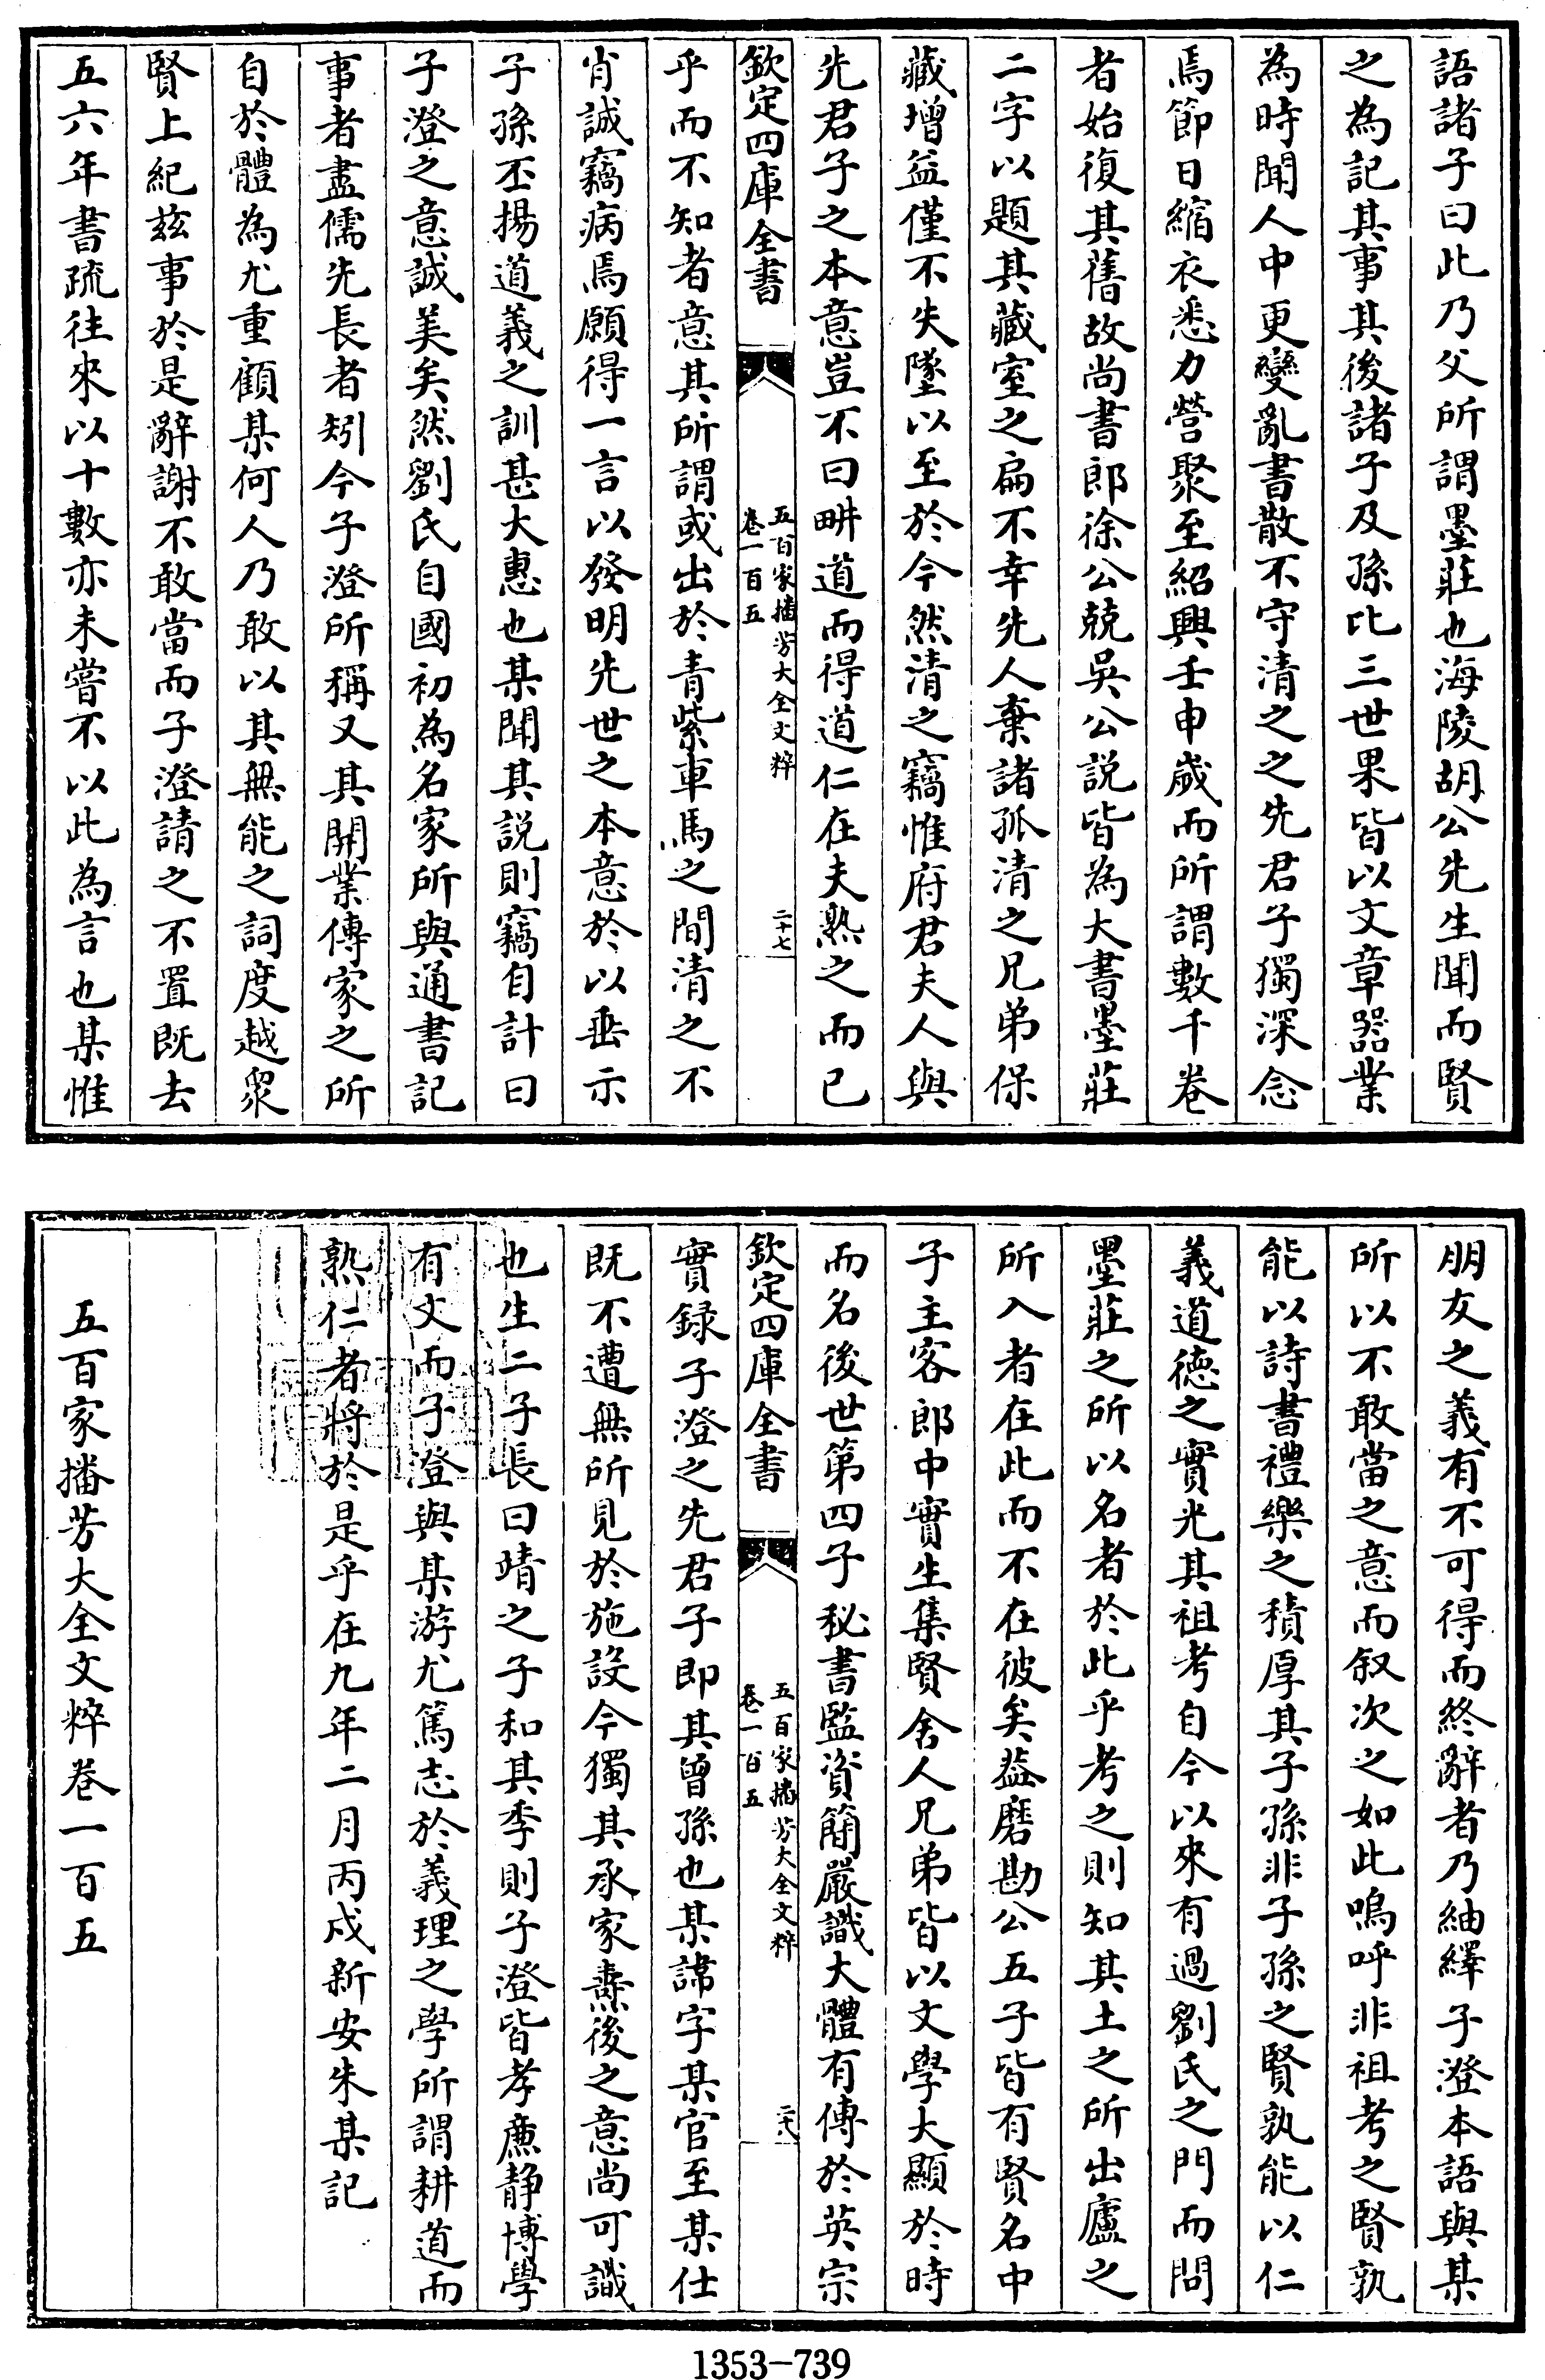 語諸子曰此乃父所謂墨莊也海陵胡公先生聞而賢
之為記其事其後諸子及孫比三世果皆以文章器業
為時聞人中更變亂書散不守清之之先君子獨深念
焉節日縮衣悉力營聚至紹興壬申歲而所謂數千卷
者始復其舊故尚書郎徐公兢吳公説皆為大書墨莊
二字以題其藏室之扁不幸先人棄諸孤清之兄弟保
藏增益僅不失墜以至於今然清之竊惟府君夫人與
先君子之本意豈不曰畊道而得道仁在夫熟之而已
欽定四庫全書
五百家播芳大全文粹
卷一百五
二十七
乎而不知者意其所謂或出於青紫車馬之間清之不
肖誠竊病焉願得一言以發明先世之本意於以垂示
子孫丕揚道義之訓甚大惠也某聞其説則竊自計曰
子澄之意誠美矣然劉氏自國初為名家所與通書記
事者盡儒先長者矧今子澄所稱又其開業傳家之所
自於體為尤重顧某何人乃敢以其無能之詞度越衆
賢上紀兹事於是辭謝不敢當而子澄請之不置既去
五六年書疏往來以十數亦未嘗不以此為言也某惟
朋友之義有不可得而終辭者乃紬繹子澄本語與某
所以不敢當之意而叙次之如此嗚呼非祖考之賢孰
能以詩書禮樂之積厚其子孫非子孫之賢孰能以仁
義道徳之實光其祖考自今以來有過劉氏之門而問
墨莊之所以名者於此乎考之則知其土之所出廬之
所入者在此而不在彼矣葢磨勘公五子皆有賢名中
子主客郎中實生集賢舍人兄弟皆以文學大顯於時
而名後世第四子秘書監資簡嚴識大體有傳於英宗
欽定四庫全書
五百家播芳大全文粹
卷一百五
二十八
實録子澄之先君子即其曽孫也某諱字某官至某仕
既不遭無所見於施設今獨其承家燾後之意尚可識
也生二子長曰靖之子和其季則子澄皆孝亷静博學
有文而子澄與某游尤篤志於義理之學所謂耕道而
熟仁者將於是乎在九年二月丙戍新安朱某記
五百家播芳大全文粹卷一百五
1353-739